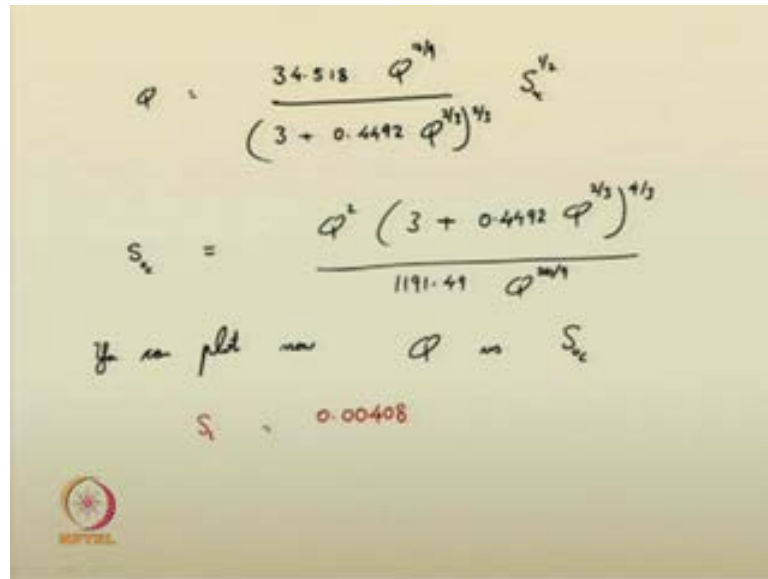 Q = 34.518 Q^10/9 / (3 + 0.4492 Q^2/3)^2/3 S_oc^1/2
S_oc = Q^2 (3 + 0.4492 Q^2/3)^4/3 / 1191.49 Q^20/9
You can plot now Q vs S_oc
S_L = 0.00408
NPTEL